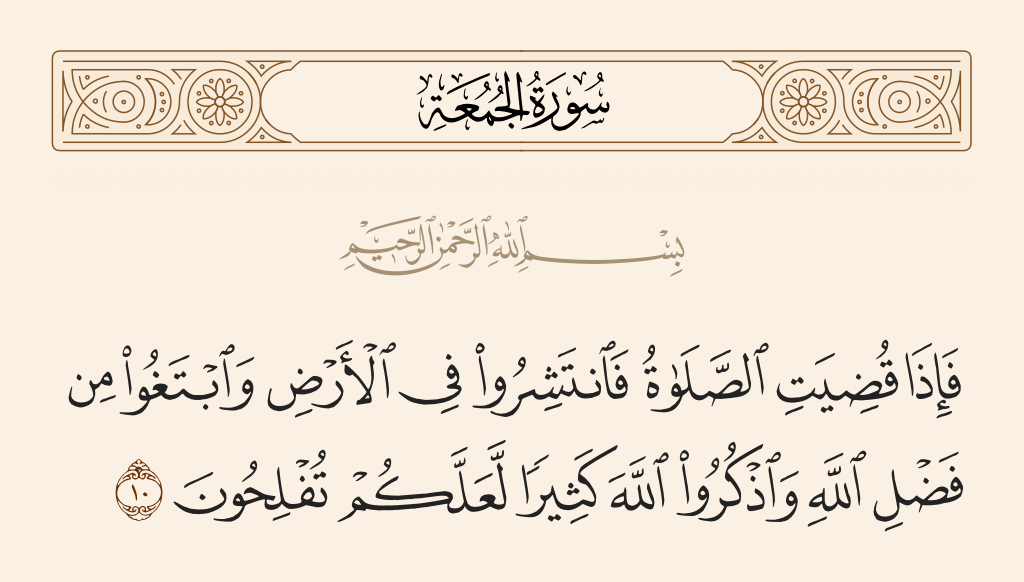 سُورَةُ الجُمُعَةِ
بِسْمِ ٱللَّهِ ٱلرَّحْمَٰنِ ٱلرَّحِيمِ
فَإِذَا قُضِيَتِ ٱلصَّلَوٰةُ فَٱنتَشِرُوا۟ فِى ٱلْأَرْضِ وَٱبْتَغُوا۟ مِن
فَضْلِ ٱللَّهِ وَٱذْكُرُوا۟ ٱللَّهَ كَثِيرًا لَّعَلَّكُمْ تُفْلِحُونَ ١٠